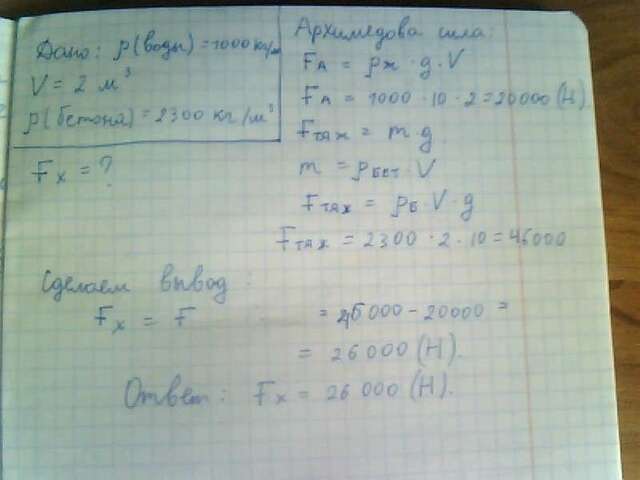 Дано: ρ(воды) = 1000 кг/м
V = 2 м³
ρ(бетона) = 2300 кг/м³
Fx = ?
Архимедова сила:
FA = ρж · g · V
FA = 1000 · 10 · 2 = 20000 (Н)
Fтяж = m · g
m = ρбет · V
Fтяж = ρб · V · g
Fтяж = 2300 · 2 · 10 = 46000
Сделаем вывод:
Fx = F = 46000 - 20000 =
= 26000 (Н).
Ответ: Fx = 26000 (Н).